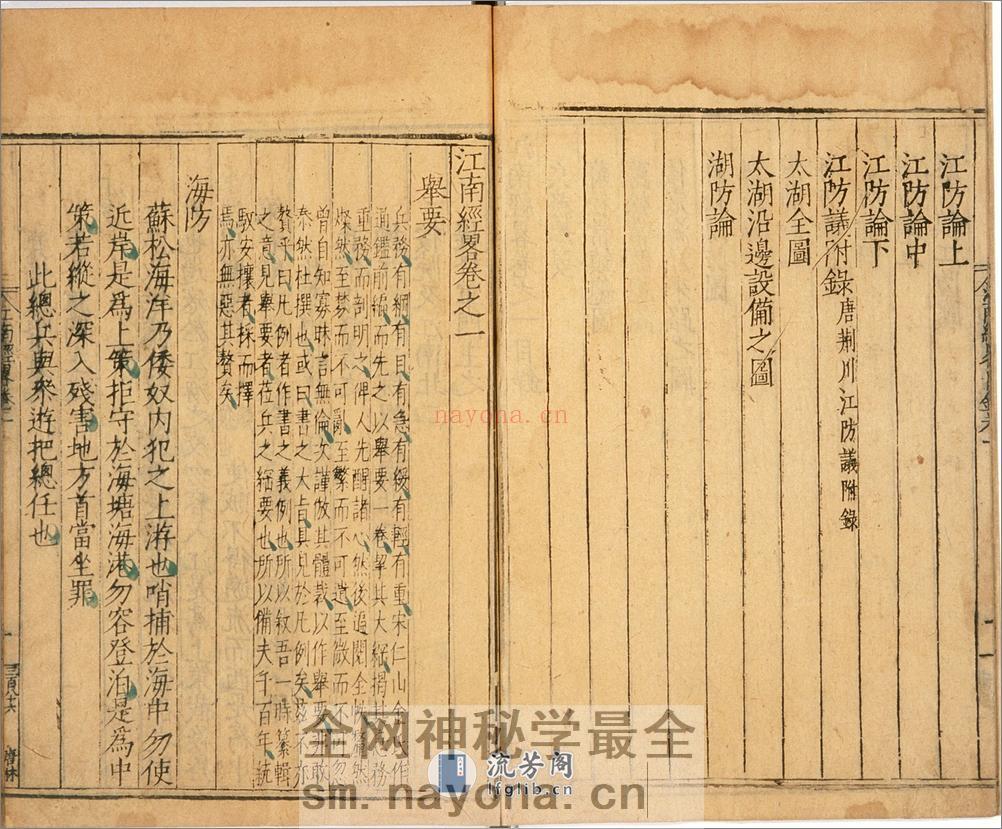 江防論上
江防論中
江防論下
江防議附錄 唐荆川江防議附錄
太湖全圖
太湖沿邊設備之圖
湖防論
江南經畧卷之一
舉要
兵務有綱有目有急有緩有輕有重宋仁山金氏作
通鑑前編而先之以舉要一卷挈其大綱揭其急務
重務而剖明之俾人先醒諸心然後追閱全帙
燦然至棼而不可亂至繁而不可遺至微而不可忽
曾自知寡昧言無倫次謹倣其體裁以作舉要非敢
泰然杜撰也或曰書之大㫖具見於凡例矣茲不亦
贅乎曰凡例者作書之義例也所以敘吾一時纂輯
之意見舉要者莅兵之綱要也所以備夫千百年統
馭安攘者採而擇
焉亦無惡其贅矣
海防
蘇松海洋乃倭奴内犯之上游也哨捕於海中勿使
近岸是為上策拒守於海塘海港勿容登泊是為中
策若縱之深入殘害地方首當坐罪
此總兵與叅遊把總任也
nayona.cn
全网神秘学最全
流芳阁
lfglib.cn
sm.nayona.cn